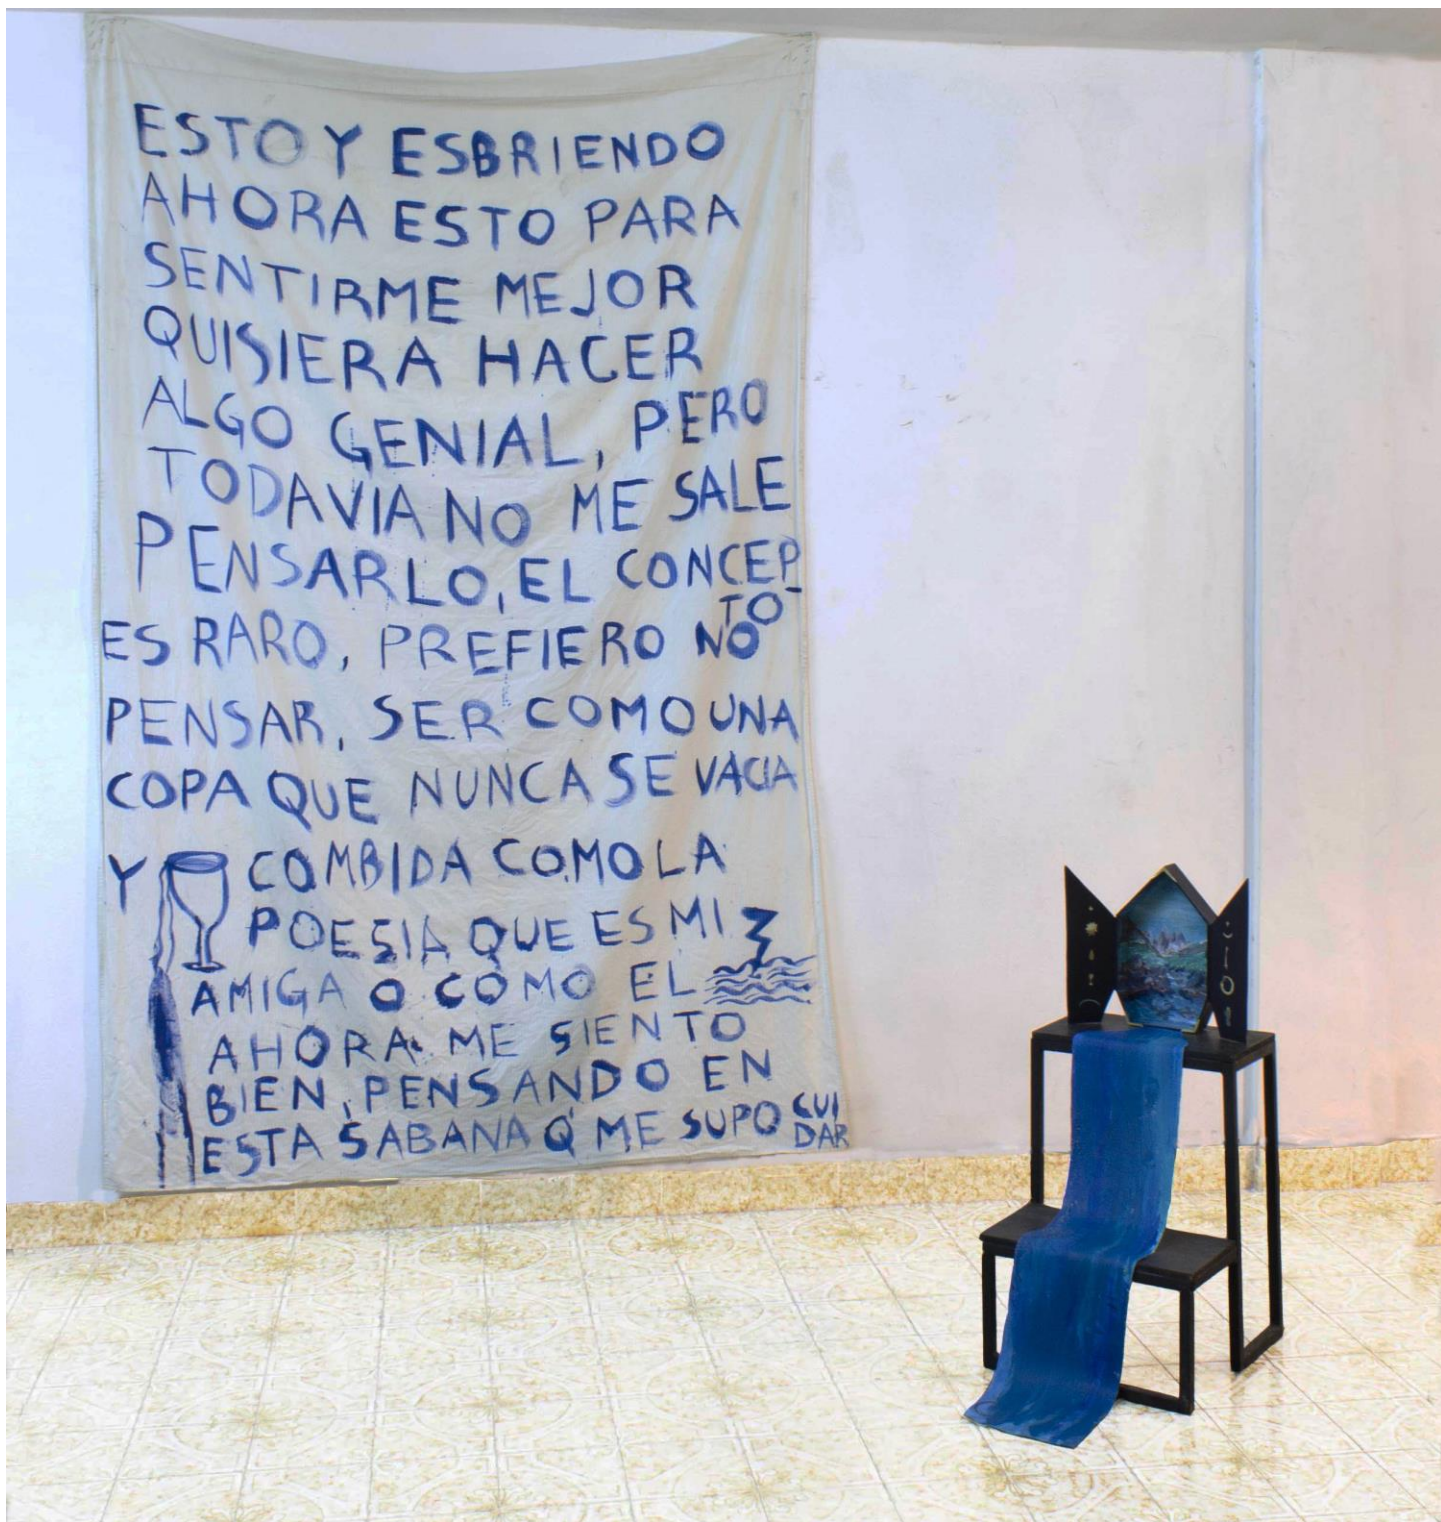 ESTOY ESBRIENDO
AHORA ESTO PARA
SENTIRME MEJOR
QUISIERA HACER
ALGO GENIAL, PERO
TODAVIA NO ME SALE
PENSARLO, EL CONCEP-
TO
ES RARO, PREFIERO NO
PENSAR, SER COMO UNA
COPA QUE NUNCA SE VACIA
Y COMBIDA COMO LA
POESIA QUE ES MI
AMIGA O COMO EL
AHORA ME SIENTO
BIEN, PENSANDO EN
ESTA SABANA Q' ME SUPO CUI
DAR